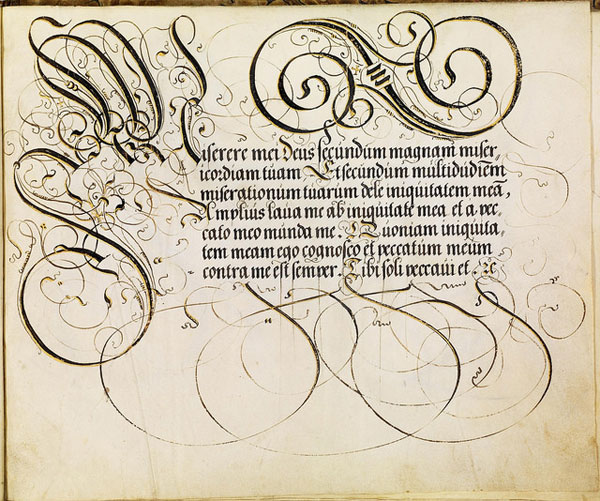 Miserere mei Deus secundum magnam miser-
icordiam tuam Et secundum multidudinem
miserationum tuarum dele iniquitatem meā,
Amplius laua me ab iniquitate mea et a pec-
cato meo munda me. Quoniam iniquita-
tem meam ego cognosco et peccatum meum
contra me est semper. Tibi soli peccaui et. &c